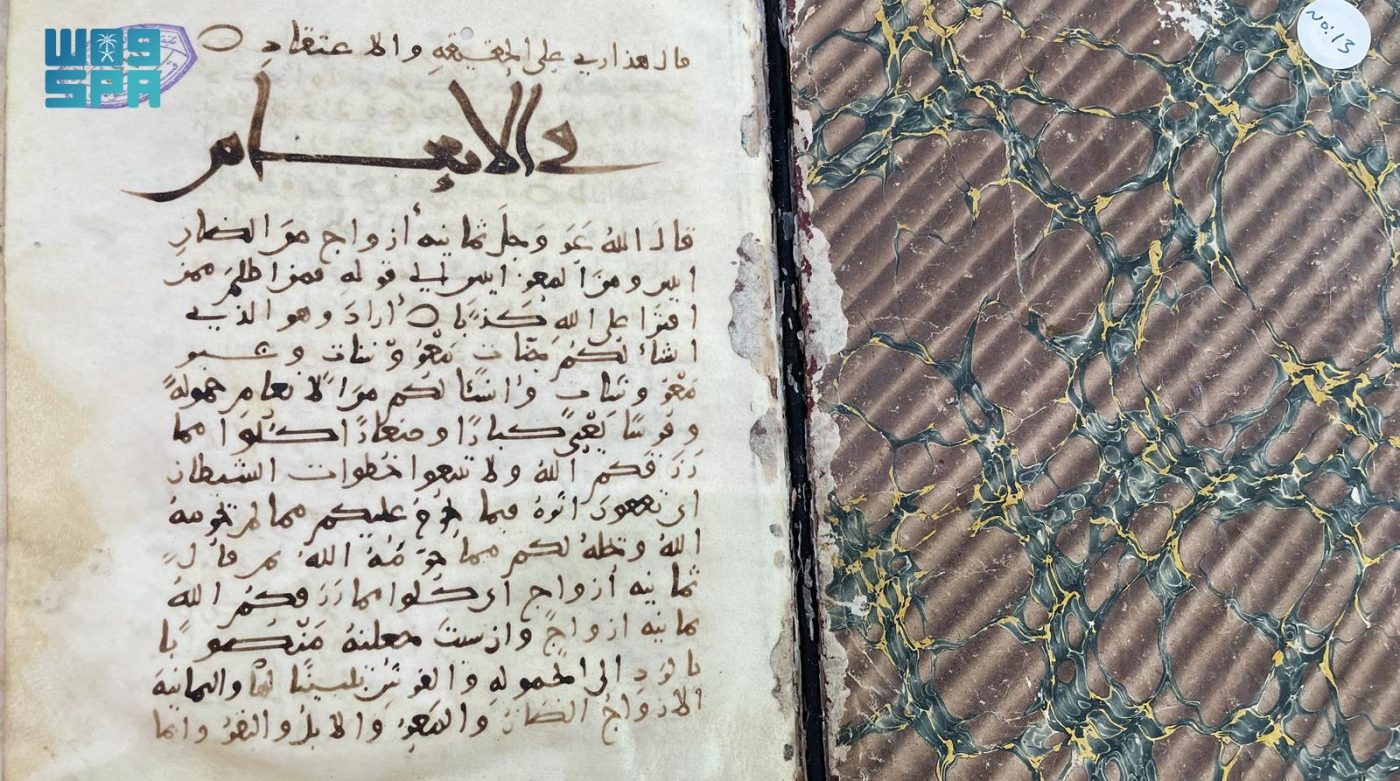 واس
SPA
No: 13
قال هذا ربي على الحقيقة والاعتقاد
في الانعام
قالَ اللهُ عَزَّ وَجلَّ ثمانية أزواج منَ الضان
اثنين ومنَ المعز اثنين الى قوله فمن اظلمُ ممن
افترا على اللهِ كَذبًا أرادَ وهو الذي
انشأ لكُم جنّات مَعْروشات وغير
مَعْروشات وأنشأ لكم منَ الانعام حمولةً
وفرشًا يَعْني كبارًا وصغارًا كُلُوا مما
رَزَقكم اللهُ ولا تتبعوا خُطوات الشيطان
اي تقفونَ اثرهُ فيما حرمَ عليكم مما لم يحرمهُ
اللهُ وتحلهُ لكم مما حرمهُ اللهُ ثم قال
ثمانيه أزواج اي كُلوا مما رزقكُم اللهُ
ثمانيه ازواجٍ وان شئتَ جعلتهُ مَنْصوبًا
بالرد الى الحمولة والفرش تبيينًا لها والثمانية
الازواجُ الضانُ والمعزُ والابلُ والبقرُ وانما